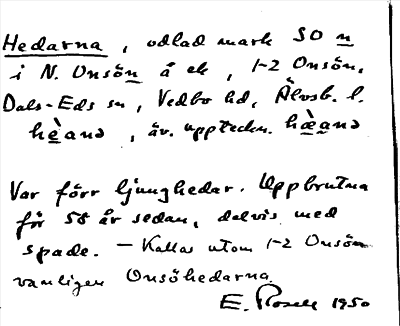 Hedarna, odlad mark SO n
i N. Onsön å ek, 1-2 Onsön,
Dals-Eds sn, Vedbo hd, Älvsb. l.
hè̱anạ, äv. uppteckn. hæ̱̀anạ
Var förr ljunghedar. Uppbrutna
för 58 år sedan, delvis med
spade. — Kallas utom 1-2 Onsön
vanligen Onsöhedarna.
E. Rosell 1950